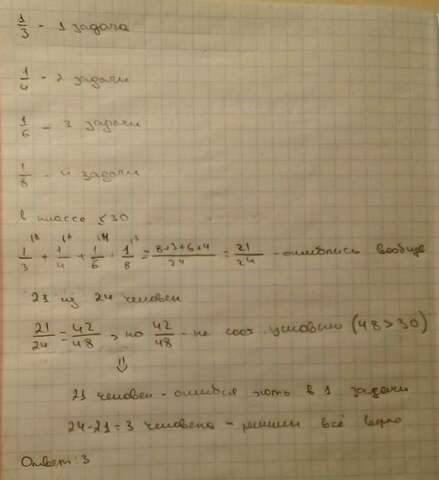 1/3 - 1 задача
1/4 - 2 задачи
1/6 - 3 задачи
1/8 - 4 задачи
в классе ≤30
1/3 + 1/4 + 1/6 + 1/8 = 8+3+6+4/24 = 21/24 - ошиблись вообще
21 из 24 человек
21/24 = 42/48, но 42/48 - не соот. условию (48>30)
⇓
21 человек - ошибся хоть в 1 задачи
24-21=3 человека - решили всё верно
Ответ: 3